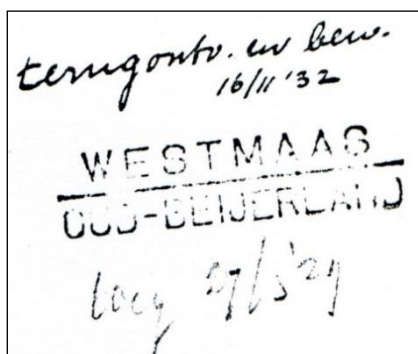 terugontv. en bew.
16/11 '32
WESTMAAS
OUD-BEIJERLAND
27/5 '29